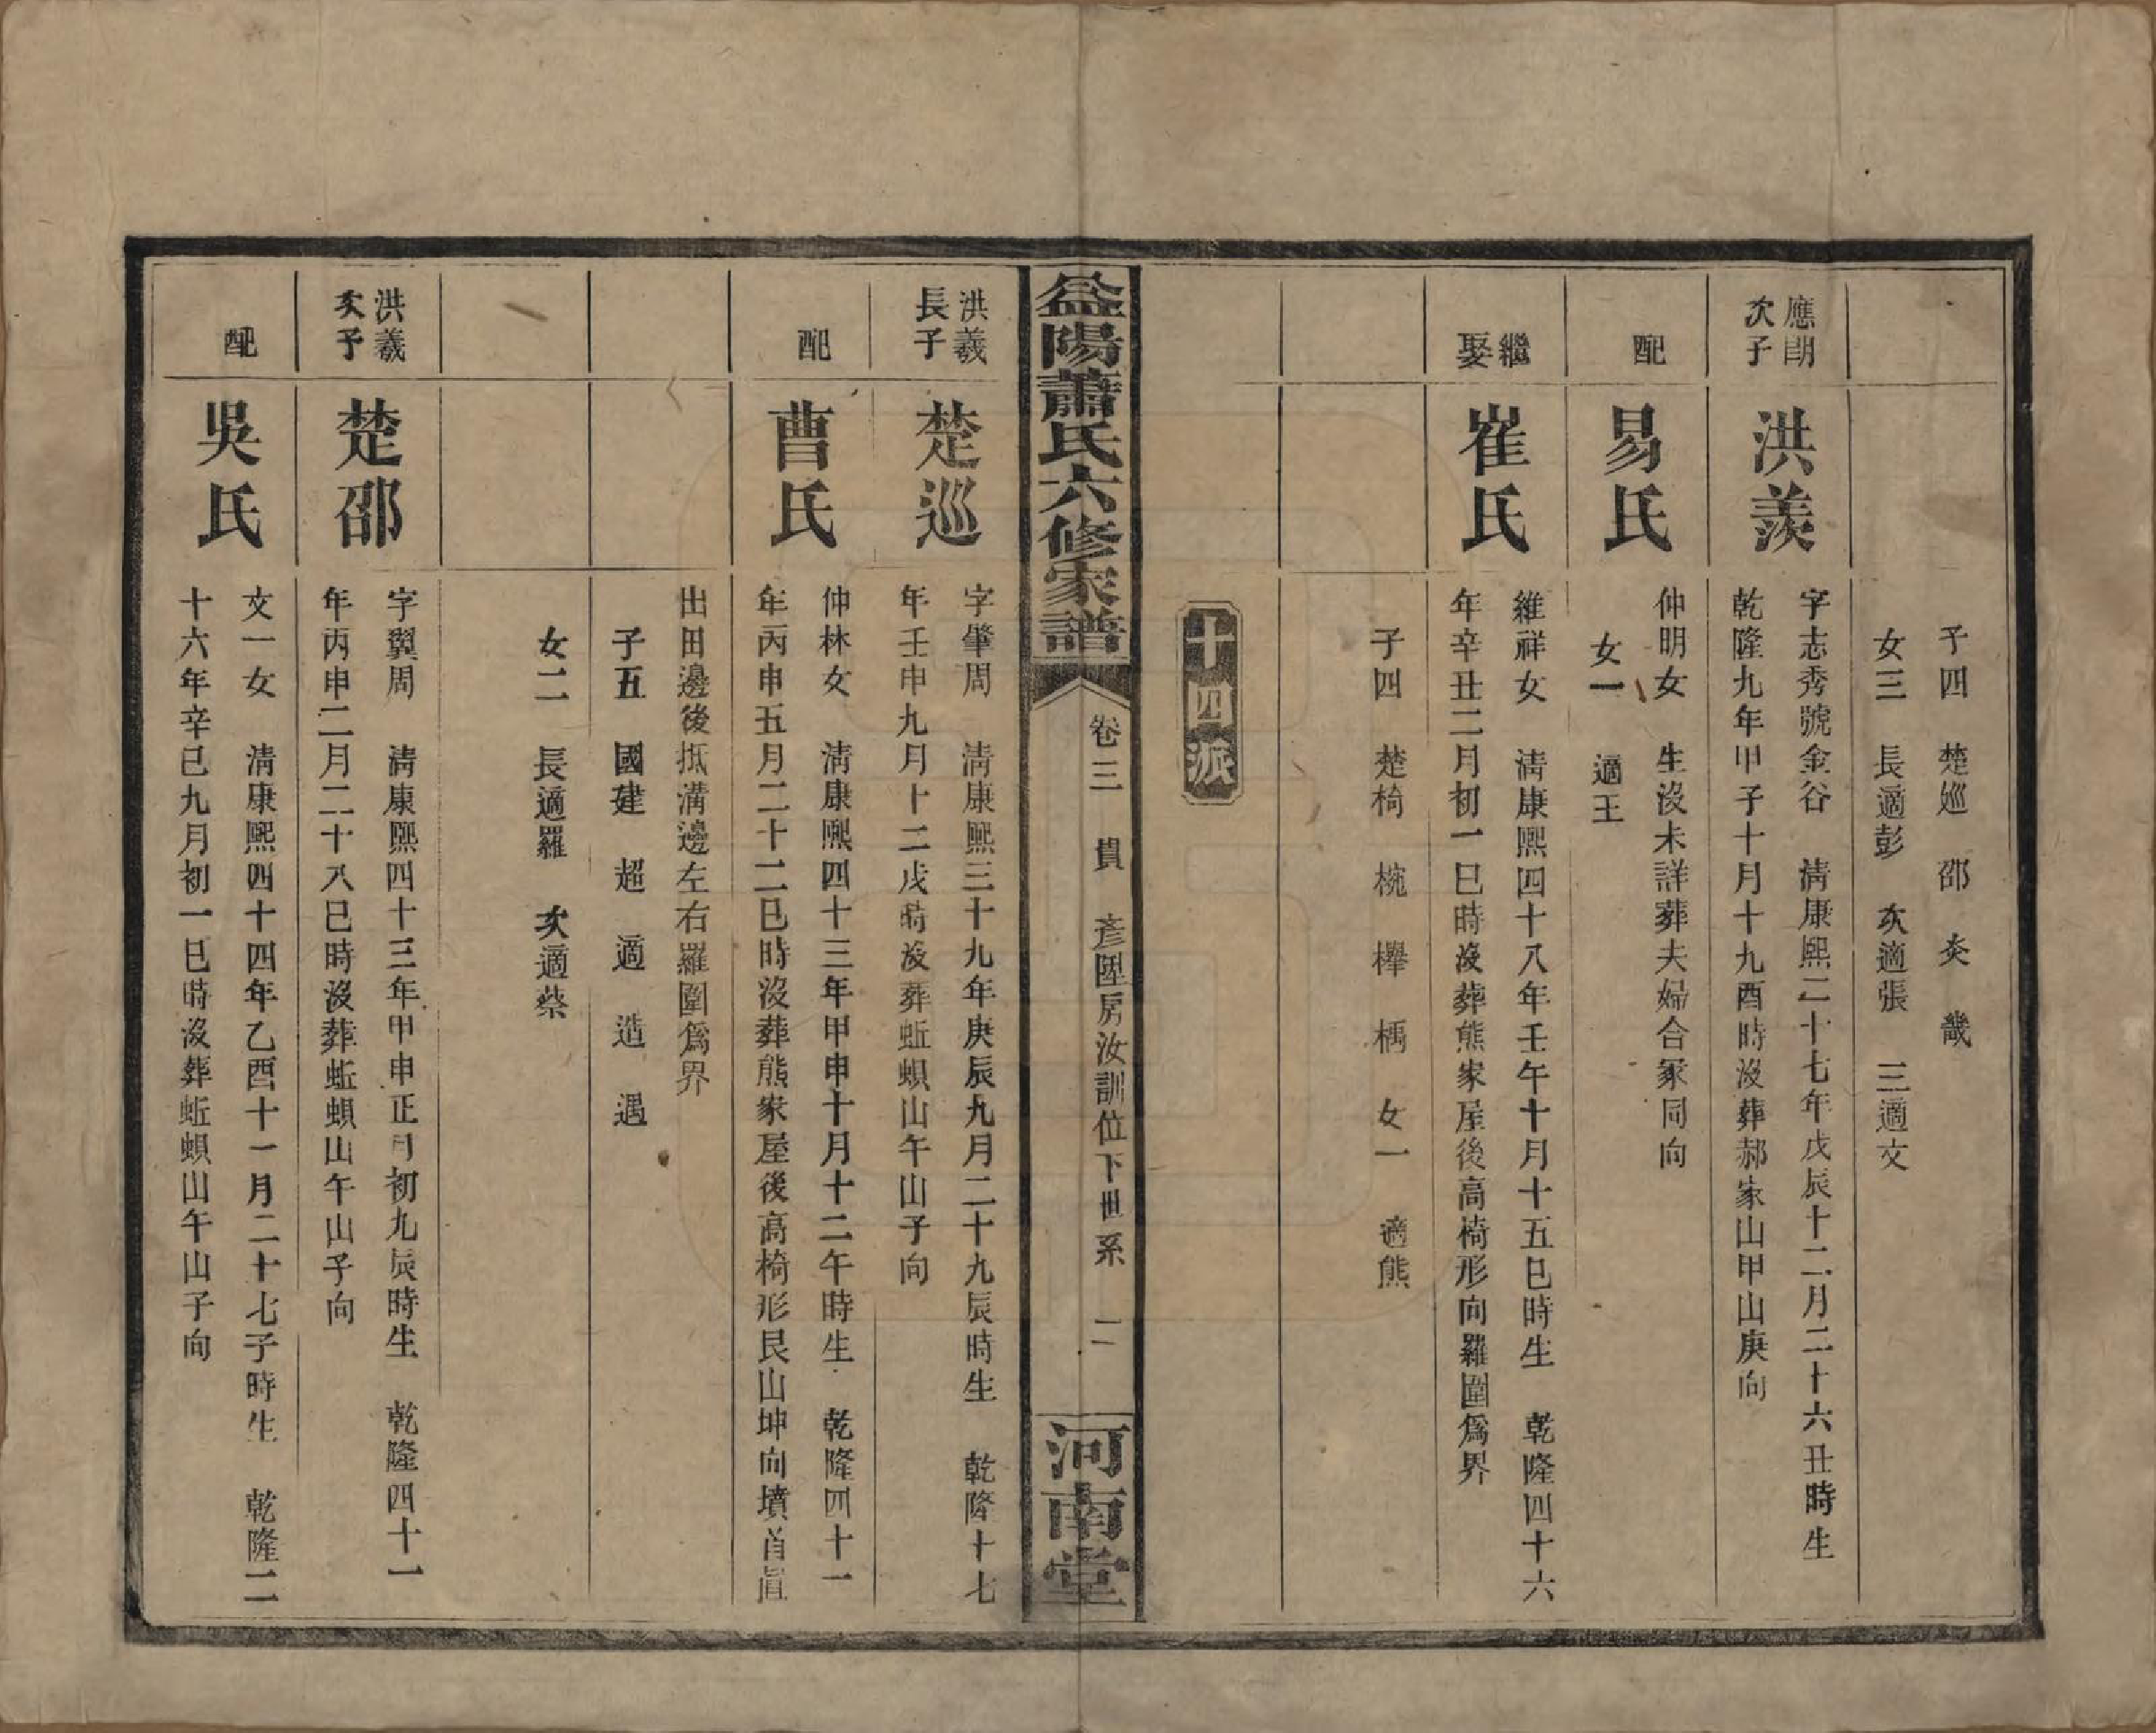 子四　楚巡　邵　炎　畿
女三　長適彭　次適張　三適文
應朗
次子
洪羨
字志秀號金谷　清康熙二十七年戊辰十二月二十六丑時生
乾隆九年甲子十月十九酉時沒葬郝家山甲山庚向
配
易氏
仲明女　生沒未詳葬夫婦合冢同向
女一　適王
繼
娶
崔氏
維祥女　清康熙四十八年壬午十月十五巳時生　乾隆四十六
年辛丑二月初一巳時沒葬熊家屋後高椅形向羅圍爲界
子四　楚椅　椀　櫸　楀　女一　適熊
十四派
益陽蕭氏六修家譜
卷三　貫　彥陞房汝訓位下世系　二
河南堂
洪羲
長子
楚巡
字肇周　清康熙三十九年庚辰九月二十九辰時生　乾隆十七
年壬申九月十二戌時沒葬蚯蟥山午山子向
配
曹氏
仲林女　清康熙四十三年甲申十月十二午時生　乾隆四十一
年丙申五月二十二巳時沒葬熊家屋後高椅形艮山坤向墳首直
出田邊後抵溝邊左右羅圍爲界
子五　國建　超　適　造　遇
女二　長適羅　次適蔡
洪羲
次子
楚邵
字翼周　清康熙四十三年甲申正月初九辰時生　乾隆四十一
年丙申二月二十八巳時沒葬蚯蟥山午山子向
配
吳氏
文一女　清康熙四十四年乙酉十一月二十七子時生　乾隆二
十六年辛巳九月初一巳時沒葬蚯蟥山午山子向